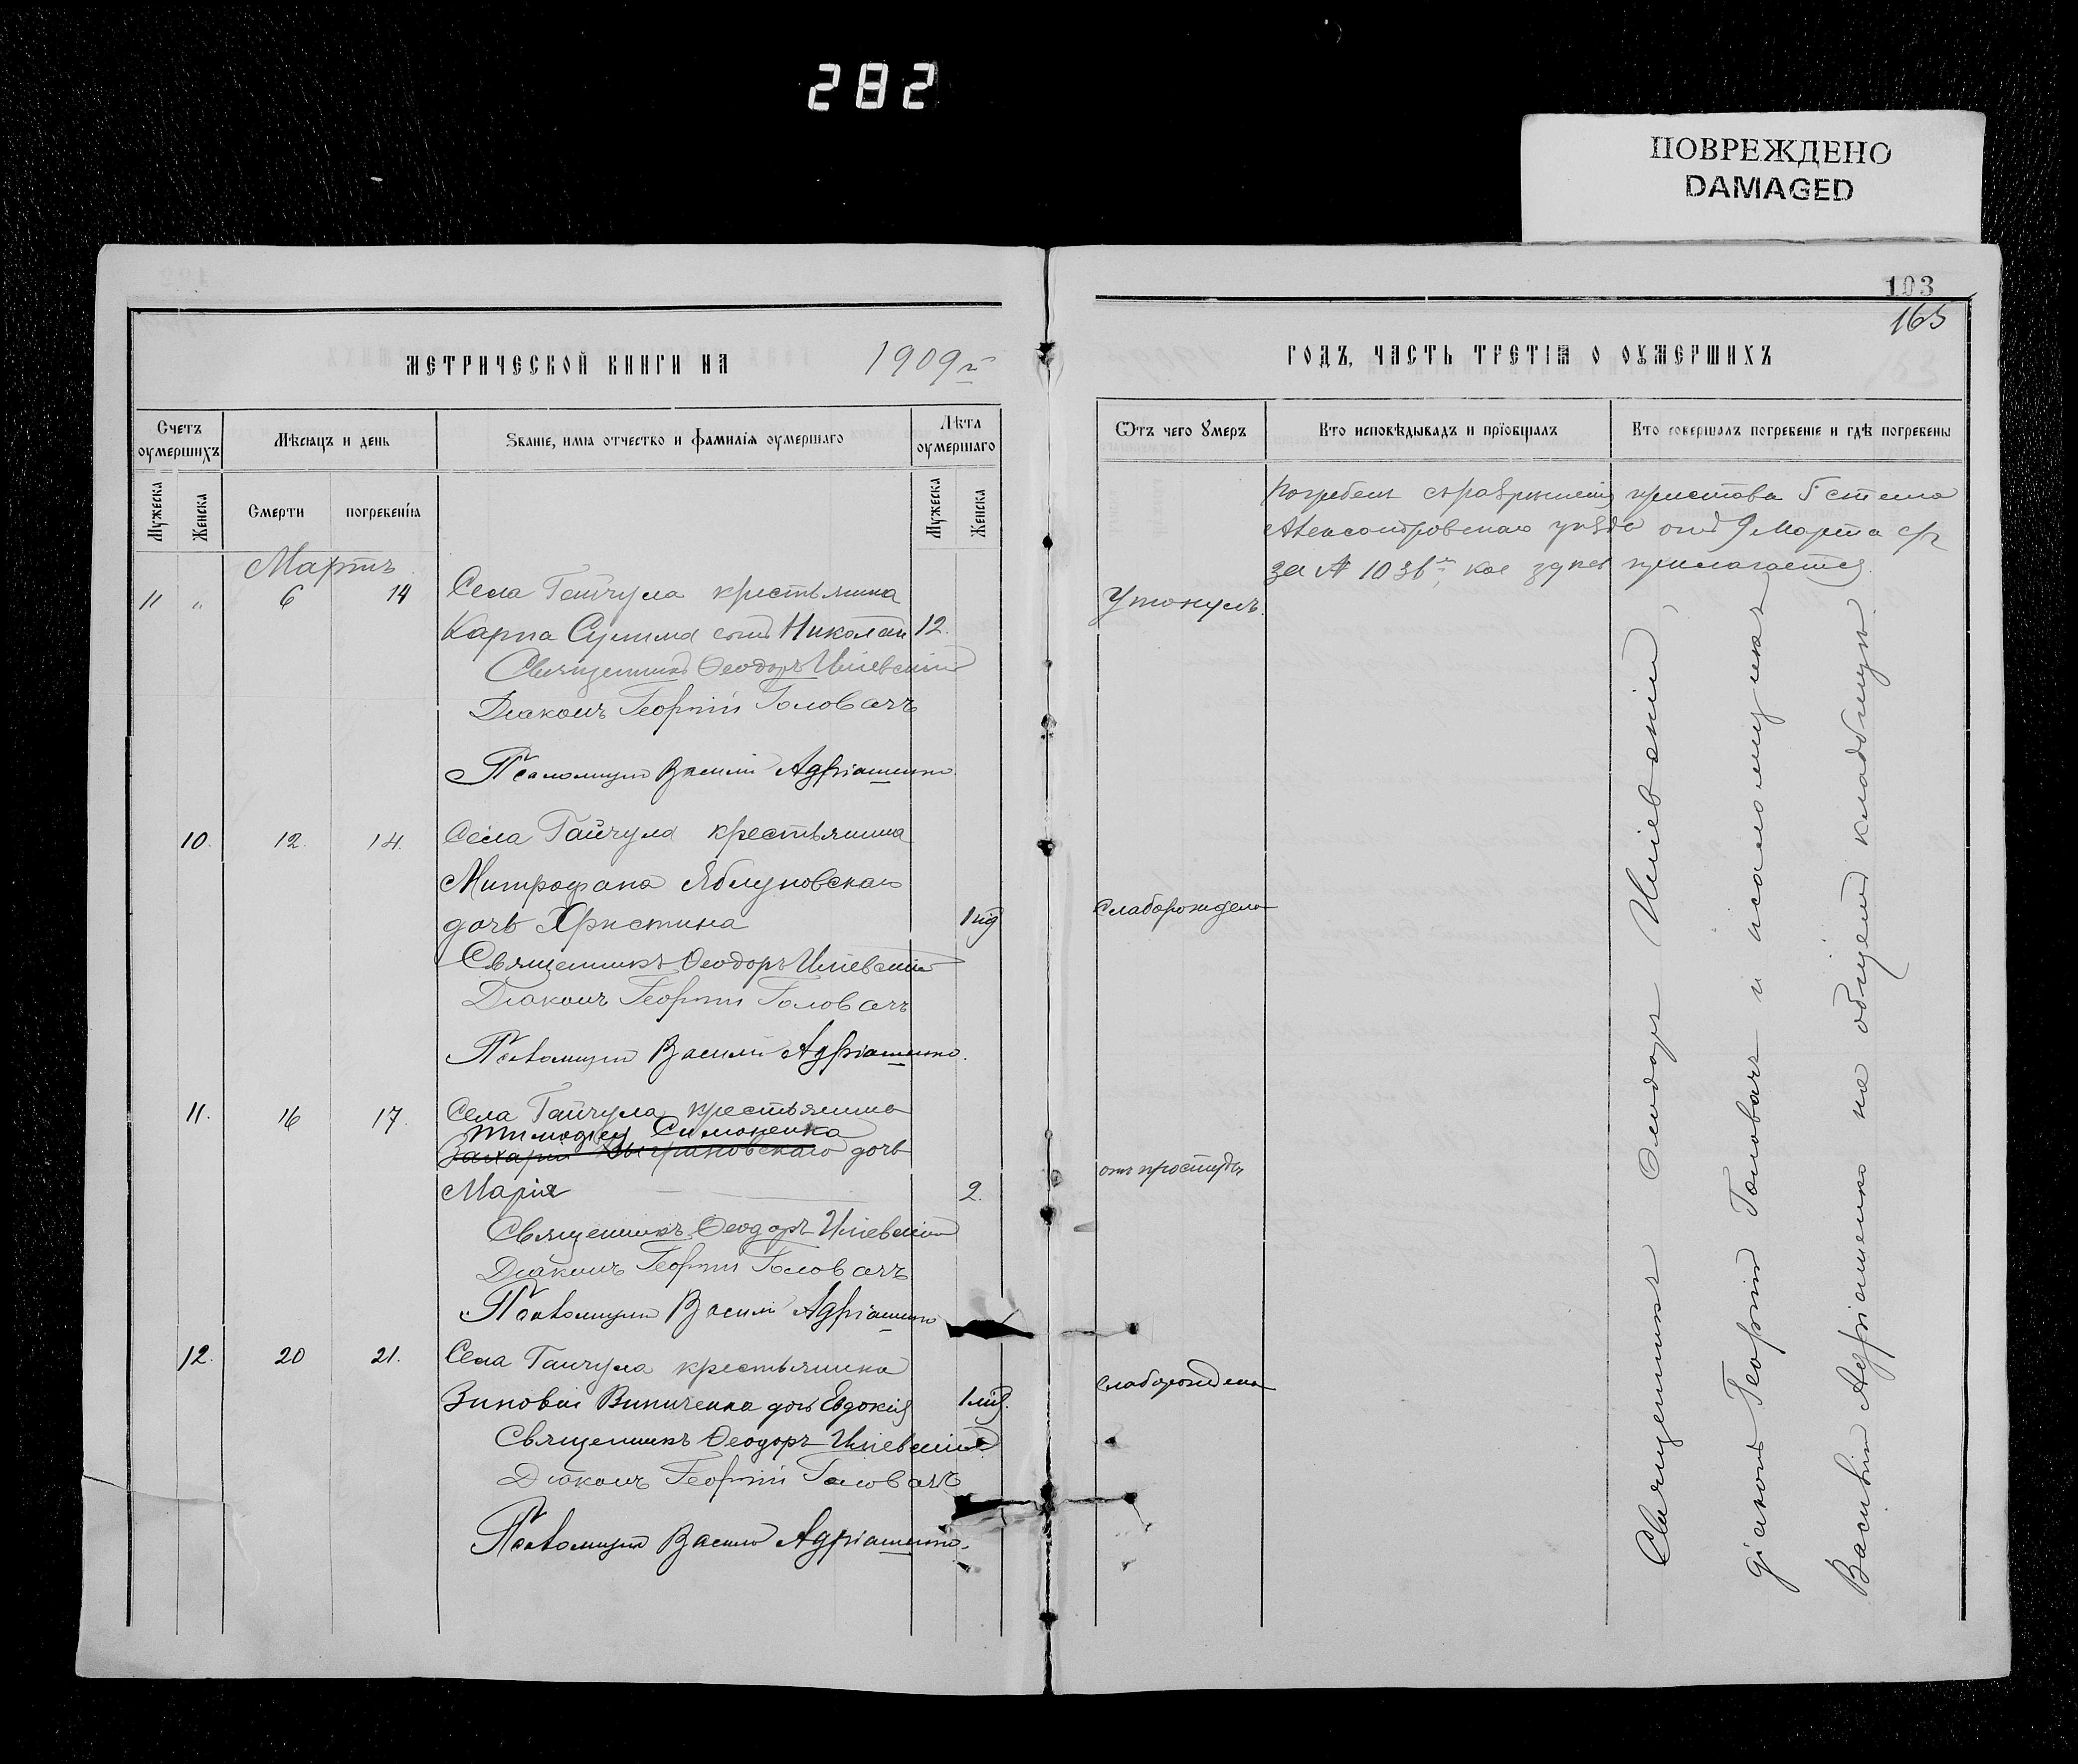 282
ПОВРЕЖДЕНО
DAMAGED
103
165
МЕТРИЧЕСКОЙ КНИГИ НА 1909 г.
ГОДЪ, ЧАСТЬ ТРЕТІЯ О ОУМЕРШИХЪ
Счетъ оумершихъ
Мѣсяцъ и день
Званіе, имя отчество и фамилія оумершаго
Лѣта оумершаго
Мужеска
Женска
Смерти
погребенія
Мужеска
Женска
Ѿтъ чего умеръ
Кто исповѣдывалъ и пріобщалъ
Кто совершалъ погребеніе и гдѣ погребены
Мартъ
11 " 6 14 Села Гайчула крестьянина
Карпа Сулима сынъ Николай 12.
Священникъ Ѳеодоръ
Діаконъ Георгій Головачъ
Псаломщикъ Василій Адріашенко
Утонулъ.
Погребенъ съ разрѣшенія пристава 5 стана
Александровскаго уѣзда отъ 9 Марта с/г
за № 1036, кое здѣсь прилагается.
10. 12. 14. Села Гайчула крестьянина
Митрофана Яблуновскаго
дочь Христина 1 нд
Священникъ Ѳеодоръ
Діаконъ Георгій Головачъ
Псаломщикъ Василій Адріашенко.
Слаборождена
11. 16 17. Села Гайчула крестьянина
Тимоѳея Симоненка
Захарія дочь
Марія 2.
Священникъ Ѳеодоръ
Діаконъ Георгій Головачъ
Псаломщикъ Василій Адріашенко
отъ простуды
12. 20 21. Села Гайчула крестьянина
Зиновія Виниченка дочь Евдокія 1 мѣс.
Священникъ Ѳеодоръ
Діаконъ Георгій Головачъ
Псаломщикъ Василій Адріашенко.
Слаборождена
Священникъ Ѳеодоръ
діаконъ Георгій Головачъ и псаломщикъ
Василій Адріашенко на общемъ кладбищѣ.